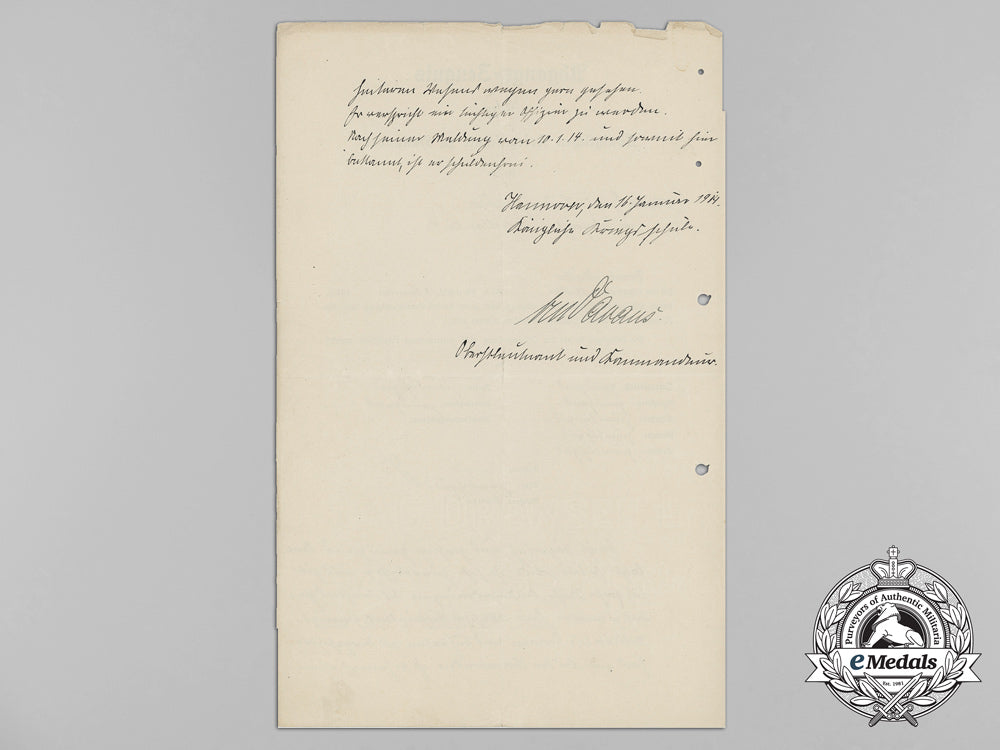 heiteren Wesens wegen gern gesehen.
Er verspricht ein tüchtiger Offizier zu werden.
Nach seiner Meldung vom 10.1.14. und soweit hier
bekannt, ist er schuldenfrei.
Hannover, den 16. Januar 1914.
Königliche Kriegsschule.
Oberstleutnant und Kommandeur.
Purveyors of Authentic Militaria
eMedals
Est. 1981